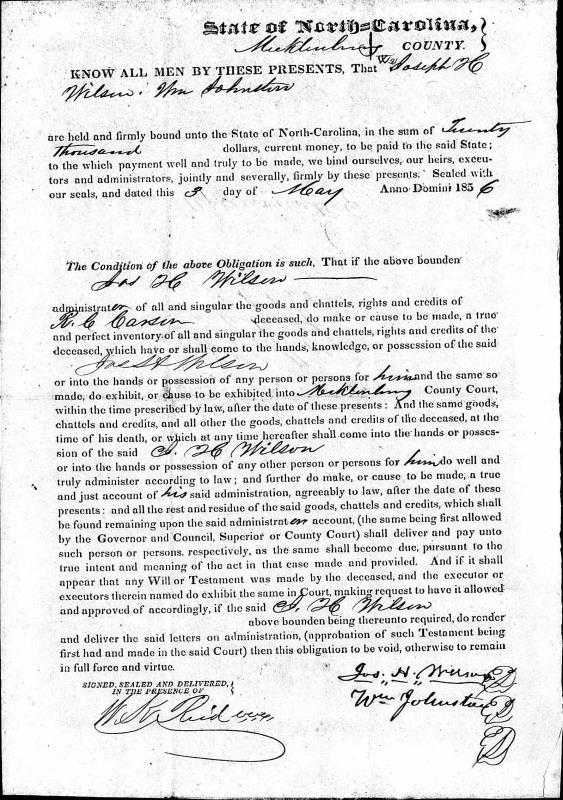 State of North-Carolina,
Mecklenburg COUNTY.
KNOW ALL MEN BY THESE PRESENTS, That We Joseph H
Wilson : Wm Johnston
are held and firmly bound unto the State of North-Carolina, in the sum of Twenty
thousand dollars, current money, to be paid to the said State;
to the which payment well and truly to be made, we bind ourselves, our heirs, execu-
tors and administrators, jointly and severally, firmly by these presents. Sealed with
our seals, and dated this 3 day of May Anno Domini 1856
The Condition of the above Obligation is such, That if the above bounden
Jos H Wilson
administrator of all and singular the goods and chattels, rights and credits of
R. C Carson deceased, do make or cause to be made, a true
and perfect inventory of all and singular the goods and chattels, rights and credits of the
deceased, which have or shall come to the hands, knowledge, or possession of the said
Jos H Wilson
or into the hands or possession of any person or persons for him and the same so
made, do exhibit, or cause to be exhibited into Mecklenburg County Court,
within the time prescribed by law, after the date of these presents: And the same goods,
chattels and credits, and all other the goods, chattels and credits of the deceased, at the
time of his death, or which at any time hereafter shall come into the hands or posses-
sion of the said J. H Wilson
or into the hands or possession of any other person or persons for him do well and
truly administer according to law; and further do make, or cause to be made, a true
and just account of his said administration, agreeably to law, after the date of these
presents: and all the rest and residue of the said goods, chattels and credits, which shall
be found remaining upon the said administrators account, (the same being first allowed
by the Governor and Council, Superior or County Court) shall deliver and pay unto
such person or persons, respectively, as the same shall become due, pursuant to the
true intent and meaning of the act in that case made and provided. And if it shall
appear that any Will or Testament was made by the deceased, and the executor or
executors therein named do exhibit the same in Court, making request to have it allowed
and approved of accordingly, if the said J. H Wilson
above bounden being thereunto required, do render
and deliver the said letters on administration, (approbation of such Testament being
first had and made in the said Court) then this obligation to be void, otherwise to remain
in full force and virtue.
SIGNED, SEALED AND DELIVERED,
IN THE PRESENCE OF
Jos. H. Wilson
Wm Johnston
W. K. Reid